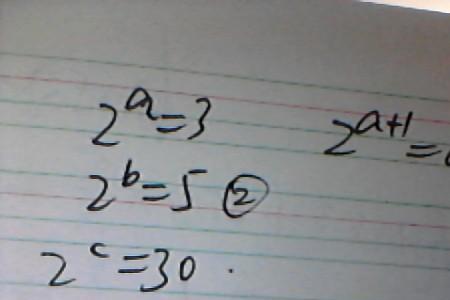 2^a=3 2^{a+1}=
2^b=5 ②
2^c=30.